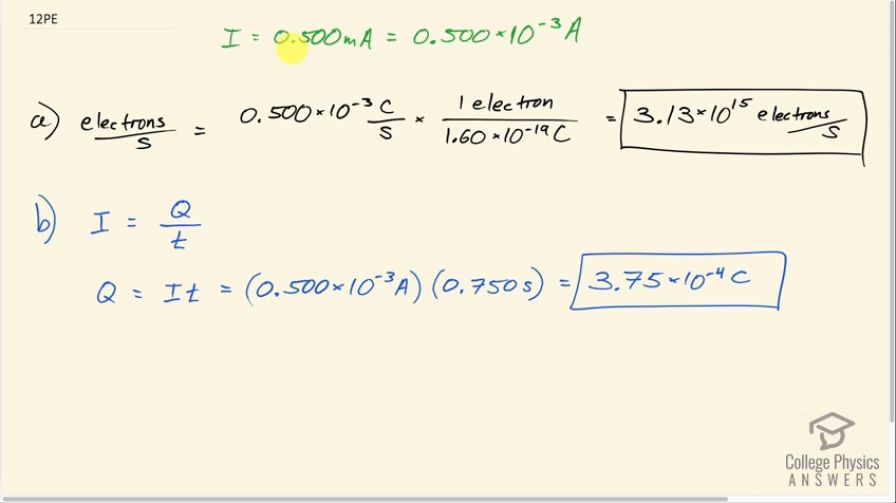 12PE
I = 0.500mA = 0.500×10⁻³A
a) electrons/s = 0.500×10⁻³ C/s × 1 electron/1.60×10⁻¹⁹C = 3.13×10¹⁵ electrons/s
b) I = Q/t
Q = It = (0.500×10⁻³A)(0.750s) = 3.75×10⁻⁴C
College Physics
ANSWERS